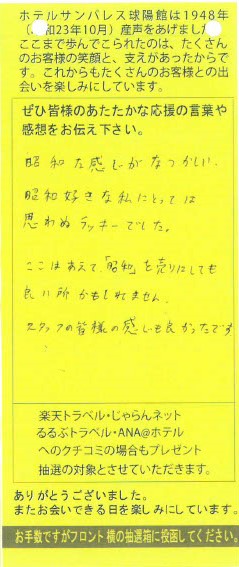 ホテルサンバレス球陽館は1948年
(昭和23年10月)産声をあげました
ここまで歩んでこられたのは、たくさん
のお客様の笑顔と、支えがあったからで
す。これからもたくさんのお客様との出
会いを楽しみにしています。
ぜひ皆様のあたたかな応援の言葉や
感想をお伝え下さい。
昭和な感じがなつかしい。
昭和好きな私にとっては
思わぬラッキーでした。
ここはあえて、「昭和」を売りにしても
良い所かもしれません。
スタッフの皆様の感じも良かったです
楽天トラベル・じゃらんネット
るるぶトラベル・ANA@ホテル
へのクチコミの場合もプレゼント
抽選の対象とさせていただきます。
ありがとうございました。
またお会いできる日を楽しみにしています。
お手数ですがフロント横の抽選箱に投函してください。